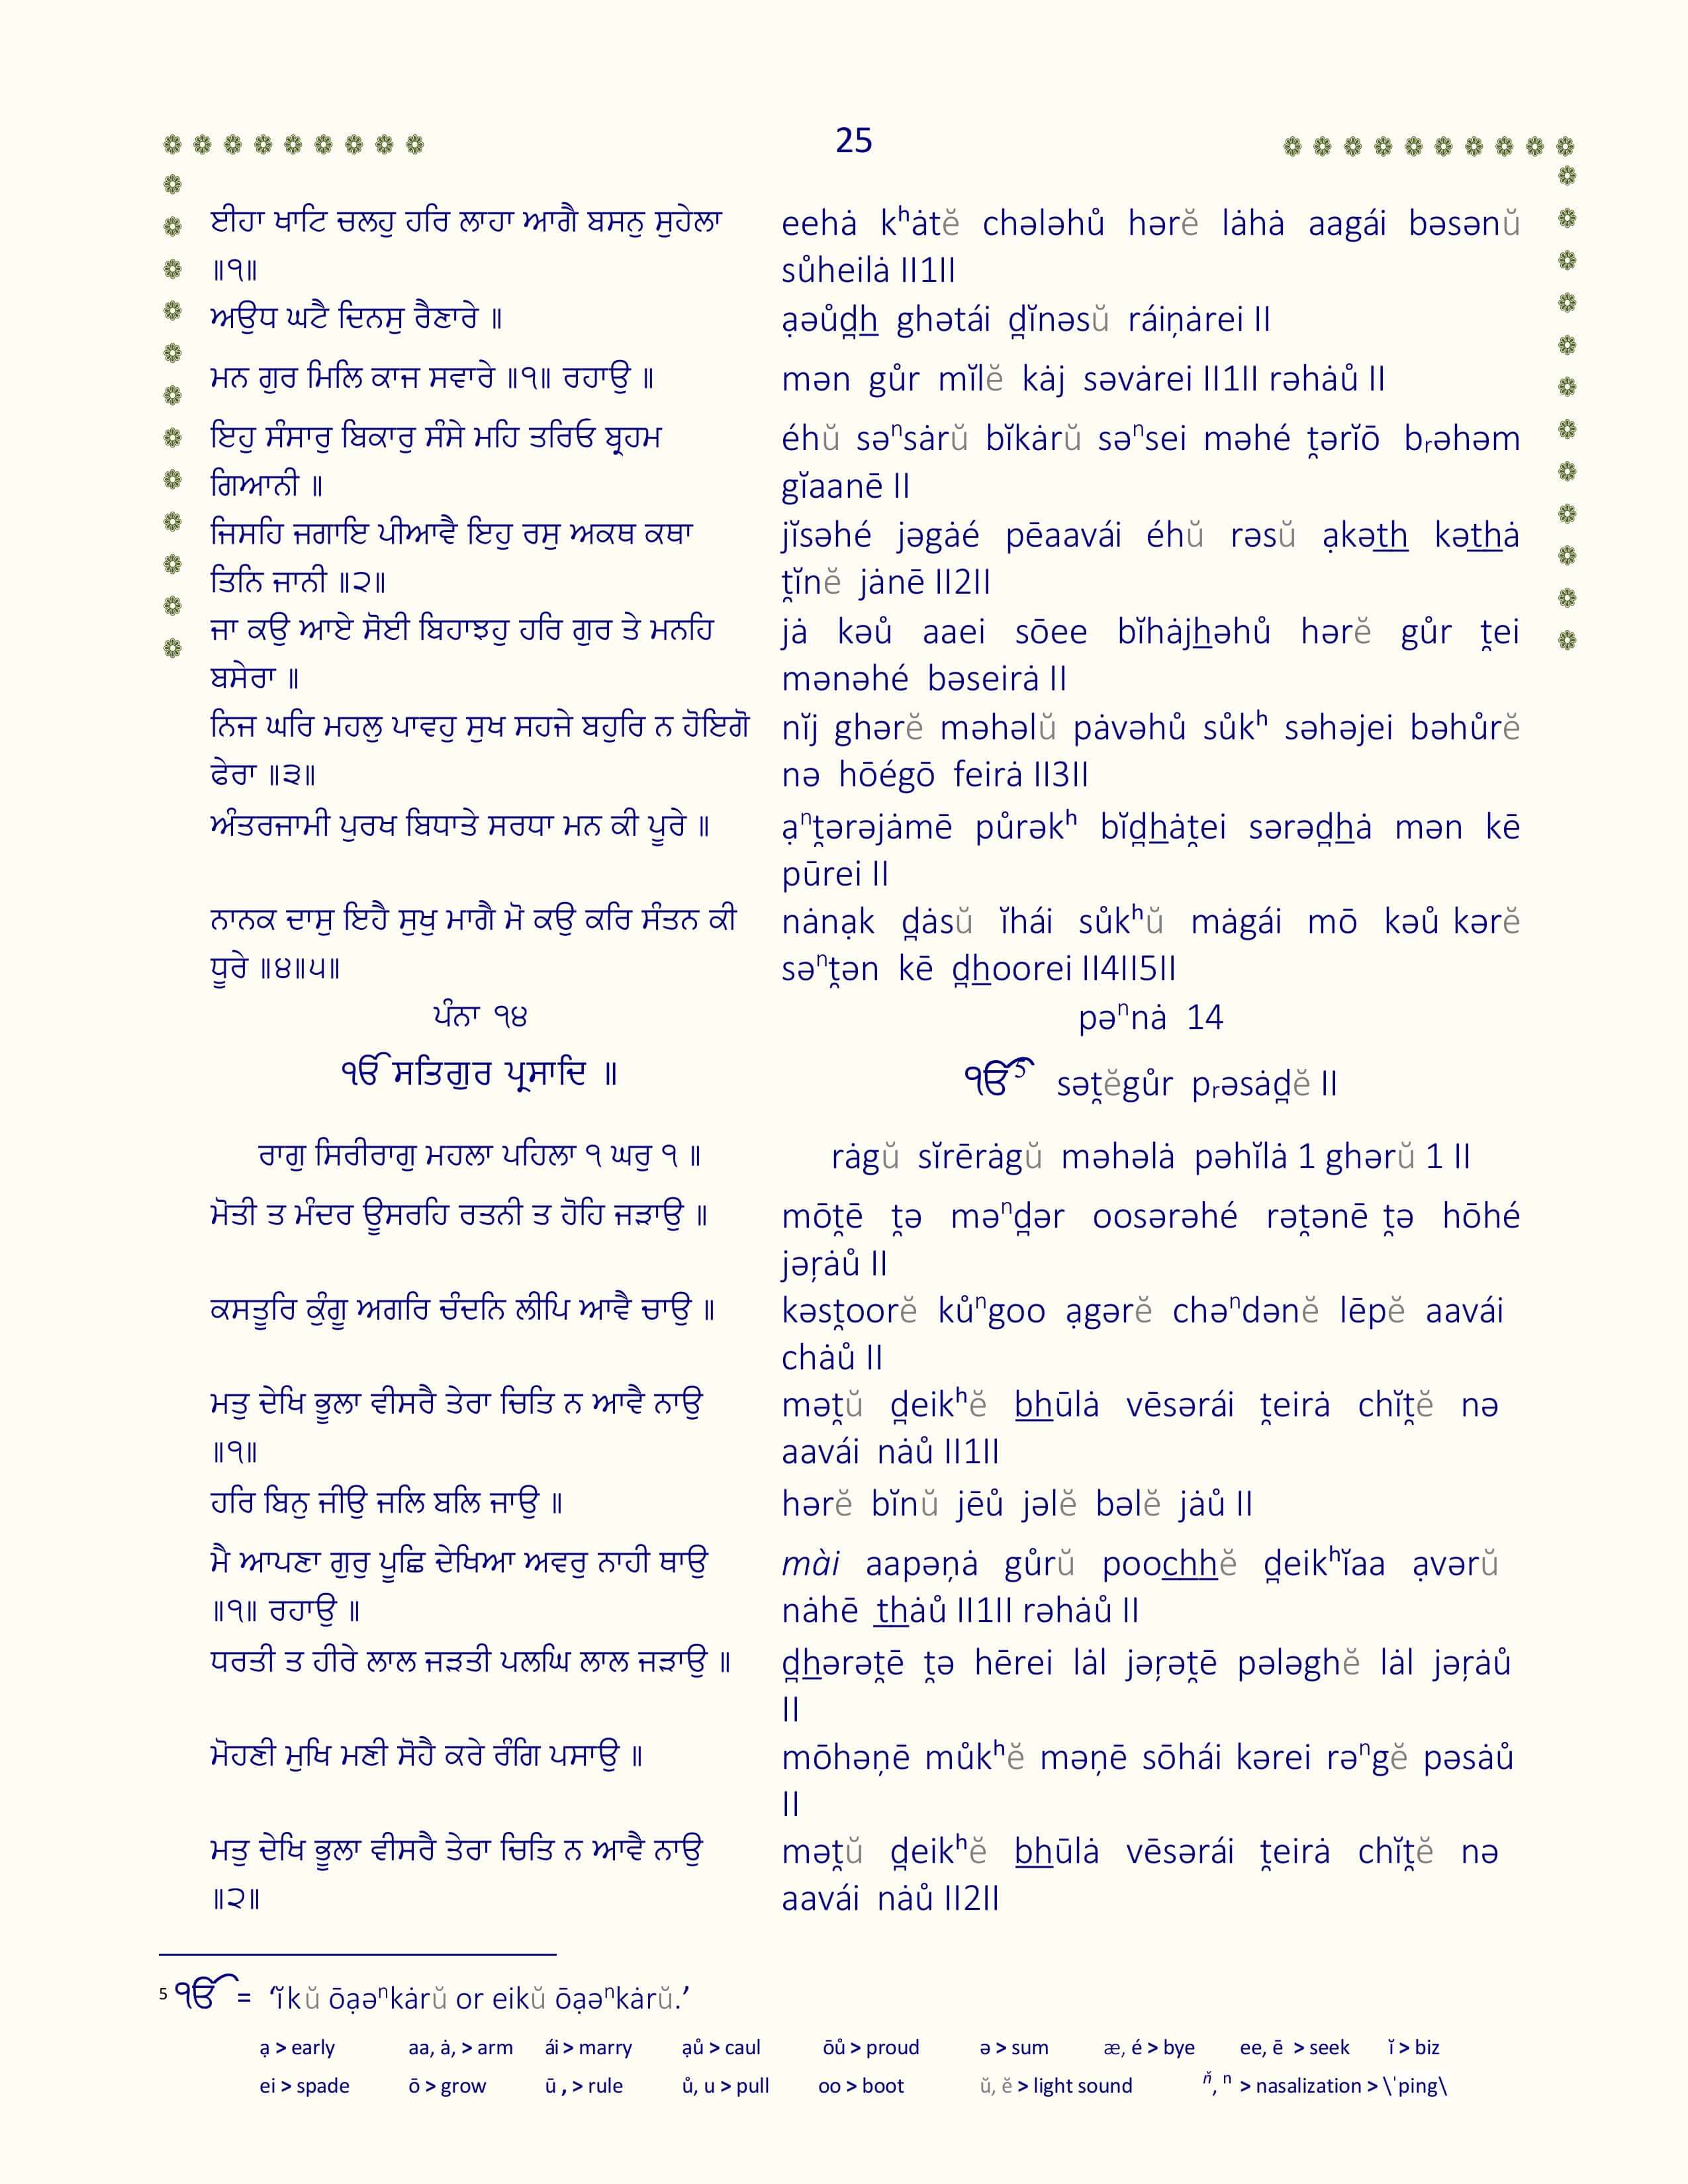 25
ਈਹਾ ਖਾਟਿ ਚਲਹੁ ਹਰਿ ਲਾਹਾ ਆਗੈ ਬਸਨੁ ਸੁਹੇਲਾ
॥੧॥
eehȧ kʰȧtĕ chələhů hərĕ lȧhȧ aagái bəsənŭ
sůheilȧ II1II
ਅਉਧ ਘਟੈ ਦਿਨਸੁ ਰੈਣਾਰੇ ॥
ạəůd̪h ghətái d̪ĭnəsŭ ráiṇȧrei II
ਮਨ ਗੁਰ ਮਿਲਿ ਕਾਜ ਸਵਾਰੇ ॥੧॥ ਰਹਾਉ ॥
mən gůr mĭlĕ kȧj səvȧrei II1II rəhȧů II
ਇਹੁ ਸੰਸਾਰੁ ਬਿਕਾਰੁ ਸੰਸੇ ਮਹਿ ਤਰਿਓ ਬ੍ਰਹਮ
ਗਿਆਨੀ ॥
éhŭ səⁿsȧrŭ bĭkȧrŭ səⁿsei məhé t̪ərĭō bᵣəhəm
gĭaanē II
ਜਿਸਹਿ ਜਗਾਇ ਪੀਆਵੈ ਇਹੁ ਰਸੁ ਅਕਥ ਕਥਾ
ਤਿਨਿ ਜਾਨੀ ॥੨॥
jĭsəhé jəgȧé pēaavái éhŭ rəsŭ ạkət͟h kət͟hȧ
t̪ĭnĕ jȧnē II2II
ਜਾ ਕਉ ਆਏ ਸੋਈ ਬਿਹਾਝਹੁ ਹਰਿ ਗੁਰ ਤੇ ਮਨਹਿ
ਬਸੇਰਾ ॥
jȧ kəů aaei sōee bĭhȧjh̲əhů hərĕ gůr t̪ei
mənəhé bəseirȧ II
ਨਿਜ ਘਰਿ ਮਹਲੁ ਪਾਵਹੁ ਸੁਖ ਸਹਜੇ ਬਹੁਰਿ ਨ ਹੋਇਗੋ
ਫੇਰਾ ॥੩॥
nĭj ghərĕ məhəlŭ pȧvəhů sůkʰ səhəjei bəhůrĕ
nə hōégō feirȧ II3II
ਅੰਤਰਜਾਮੀ ਪੁਰਖ ਬਿਧਾਤੇ ਸਰਧਾ ਮਨ ਕੀ ਪੂਰੇ ॥
ạⁿt̪ərəjȧmē půrəkʰ bĭd̪h̲ȧt̪ei sərəd̪h̲ȧ mən kē
pūrei II
ਨਾਨਕ ਦਾਸੁ ਇਹੈ ਸੁਖੁ ਮਾਗੈ ਮੋ ਕਉ ਕਰਿ ਸੰਤਨ ਕੀ
ਧੂਰੇ ॥੪॥੫॥
nȧnạk d̪ȧsŭ ĭhái sůkʰŭ mȧgái mō kəů kərĕ
səⁿt̪ən kē d̪h̲oorei II4II5II
ਪੰਨਾ ੧੪
pəⁿnȧ 14
ੴ ਸਤਿਗੁਰ ਪ੍ਰਸਾਦਿ ॥
ੴ⁵ sət̪ĕgůr pᵣəsȧd̪ĕ II
ਰਾਗੁ ਸਿਰੀਰਾਗੁ ਮਹਲਾ ਪਹਿਲਾ ੧ ਘਰੁ ੧ ॥
rȧgŭ sĭrērȧgŭ məhəlȧ pəhĭlȧ 1 ghərŭ 1 II
ਮੋਤੀ ਤ ਮੰਦਰ ਊਸਰਹਿ ਰਤਨੀ ਤ ਹੋਹਿ ਜੜਾਉ ॥
mōt̪ē t̪ə məⁿd̪ər oosərəhé rət̪ənē t̪ə hōhé
jəṛȧů II
ਕਸਤੂਰਿ ਕੁੰਗੂ ਅਗਰਿ ਚੰਦਨਿ ਲੀਪਿ ਆਵੈ ਚਾਉ ॥
kəst̪oorĕ kůⁿgoo ạgərĕ chəⁿdənĕ lēpĕ aavái
chȧů II
ਮਤੁ ਦੇਖਿ ਭੂਲਾ ਵੀਸਰੈ ਤੇਰਾ ਚਿਤਿ ਨ ਆਵੈ ਨਾਉ
॥੧॥
mət̪ŭ d̪eikʰĕ b̲h̲ūlȧ vēsərái t̪eirȧ chĭt̪ĕ nə
aavái nȧů II1II
ਹਰਿ ਬਿਨੁ ਜੀਉ ਜਲਿ ਬਲਿ ਜਾਉ ॥
hərĕ bĭnŭ jēů jəlĕ bəlĕ jȧů II
ਮੈ ਆਪਣਾ ਗੁਰੁ ਪੂਛਿ ਦੇਖਿਆ ਅਵਰੁ ਨਾਹੀ ਥਾਉ
॥੧॥ ਰਹਾਉ ॥
mài aapəṇȧ gůrŭ pooc̲h̲h̲ĕ d̪eikʰĭaa ạvərŭ
nȧhē t̲h̲ȧů II1II rəhȧů II
ਧਰਤੀ ਤ ਹੀਰੇ ਲਾਲ ਜੜਤੀ ਪਲਘਿ ਲਾਲ ਜੜਾਉ ॥
d̪h̲ərət̪ē t̪ə hērei lȧl jəṛət̪ē pələghĕ lȧl jəṛȧů
II
ਮੋਹਣੀ ਮੁਖਿ ਮਣੀ ਸੋਹੈ ਕਰੇ ਰੰਗਿ ਪਸਾਉ ॥
mōhəṇē můkʰĕ məṇē sōhái kərei rəⁿgĕ pəsȧů
II
ਮਤੁ ਦੇਖਿ ਭੂਲਾ ਵੀਸਰੈ ਤੇਰਾ ਚਿਤਿ ਨ ਆਵੈ ਨਾਉ
॥੨॥
mət̪ŭ d̪eikʰĕ b̲h̲ūlȧ vēsərái t̪eirȧ chĭt̪ĕ nə
aavái nȧů II2II
5 ੴ = ‘ĭkŭ ōạəⁿkȧrŭ or eikŭ ōạəⁿkȧrŭ.’
ạ > early aa, ȧ, > arm ái > marry ạů > caul ōů > proud ə > sum æ, é > bye ee, ē > seek ĭ > biz
ei > spade ō > grow ū , > rule ů, u > pull oo > boot ŭ, ĕ > light sound ň, ⁿ > nasalization > \ˈping\